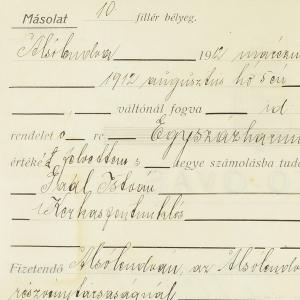 Másolat 10 fillér bélyeg.
Alsólendva 1912 március
1912 augusztus hó 5 én
váltónál fogva id
rendelet e re Egyszázharm
értéke tegye számolásba tudó
Gaál István
Kerkaszentmiklós
Fizetendő Alsólendván, az Alsólend
részvénytársaságnál